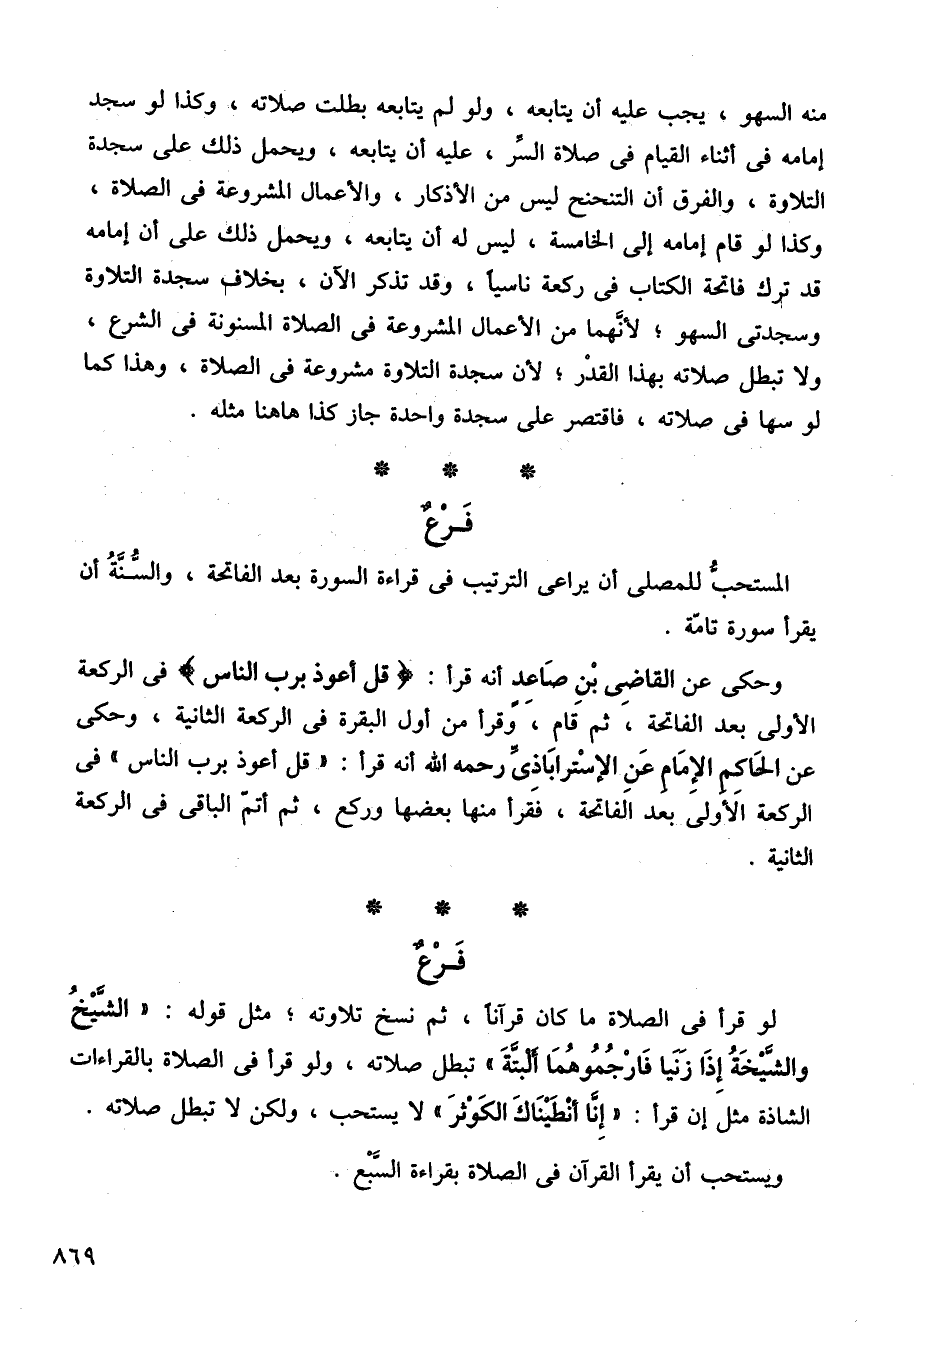 منه السهو ، يجب عليه أن يتابعه ، ولو لم يتابعه بطلت صلاته ، وكذا لو سجد
إمامه فى أثناء القيام فى صلاة السرِّ ، عليه أن يتابعه ، ويحمل ذلك على سجدة
التلاوة ، والفرق أن التنحنح ليس من الأذكار ، والأعمال المشروعة فى الصلاة ،
وكذا لو قام إمامه إلى الخامسة ، ليس له أن يتابعه ، ويحمل ذلك على أن إمامه
قد ترك فاتحة الكتاب فى ركعة ناسياً ، وقد تذكر الآن ، بخلاف سجدة التلاوة
وسجدتى السهو ؛ لأنَّهما من الأعمال المشروعة فى الصلاة المسنونة فى الشرع ،
ولا تبطل صلاته بهذا القدْر ؛ لأن سجدة التلاوة مشروعة فى الصلاة ، وهذا كما
لو سها فى صلاته ، فاقتصر على سجدة واحدة جاز كذا هاهنا مثله .
* * *
فَـرْعٌ
المستحبُّ للمصلى أن يراعى الترتيب فى قراءة السورة بعد الفاتحة ، والسُّنَّةُ أن
يقرأ سورة تامّة .
وحكى عن القاضِى بْنِ صَاعِدٍ أنه قرأ : ﴿ قل أعوذ برب الناس ﴾ فى الركعة
الأولى بعد الفاتحة ، ثم قام ، وقرأ من أول البقرة فى الركعة الثانية ، وحكى
عن الحَاكِمِ الإمَامِ عَنِ الإسْتراباذِىِّ رحمه الله أنه قرأ : « قل أعوذ برب الناس » فى
الركعة الأولى بعد الفاتحة ، فقرأ منها بعضها وركع ، ثم أتمّ الباقى فى الركعة
الثانية .
* * *
فَـرْعٌ
لو قرأ فى الصلاة ما كان قرآناً ، ثم نسخ تلاوته ؛ مثل قوله : « الشَّيْخُ
والشَّيْخَةُ إِذَا زَنَيا فَارْجُمُوهُمَا أَلْبتَّةَ » تبطل صلاته ، ولو قرأ فى الصلاة بالقراءات
الشاذة مثل إن قرأ : « إِنَّا أنْطَيْنَاكَ الكَوْثرَ » لا يستحب ، ولكن لا تبطل صلاته .
ويستحب أن يقرأ القرآن فى الصلاة بقراءة السَّبْع .
٨٦٩